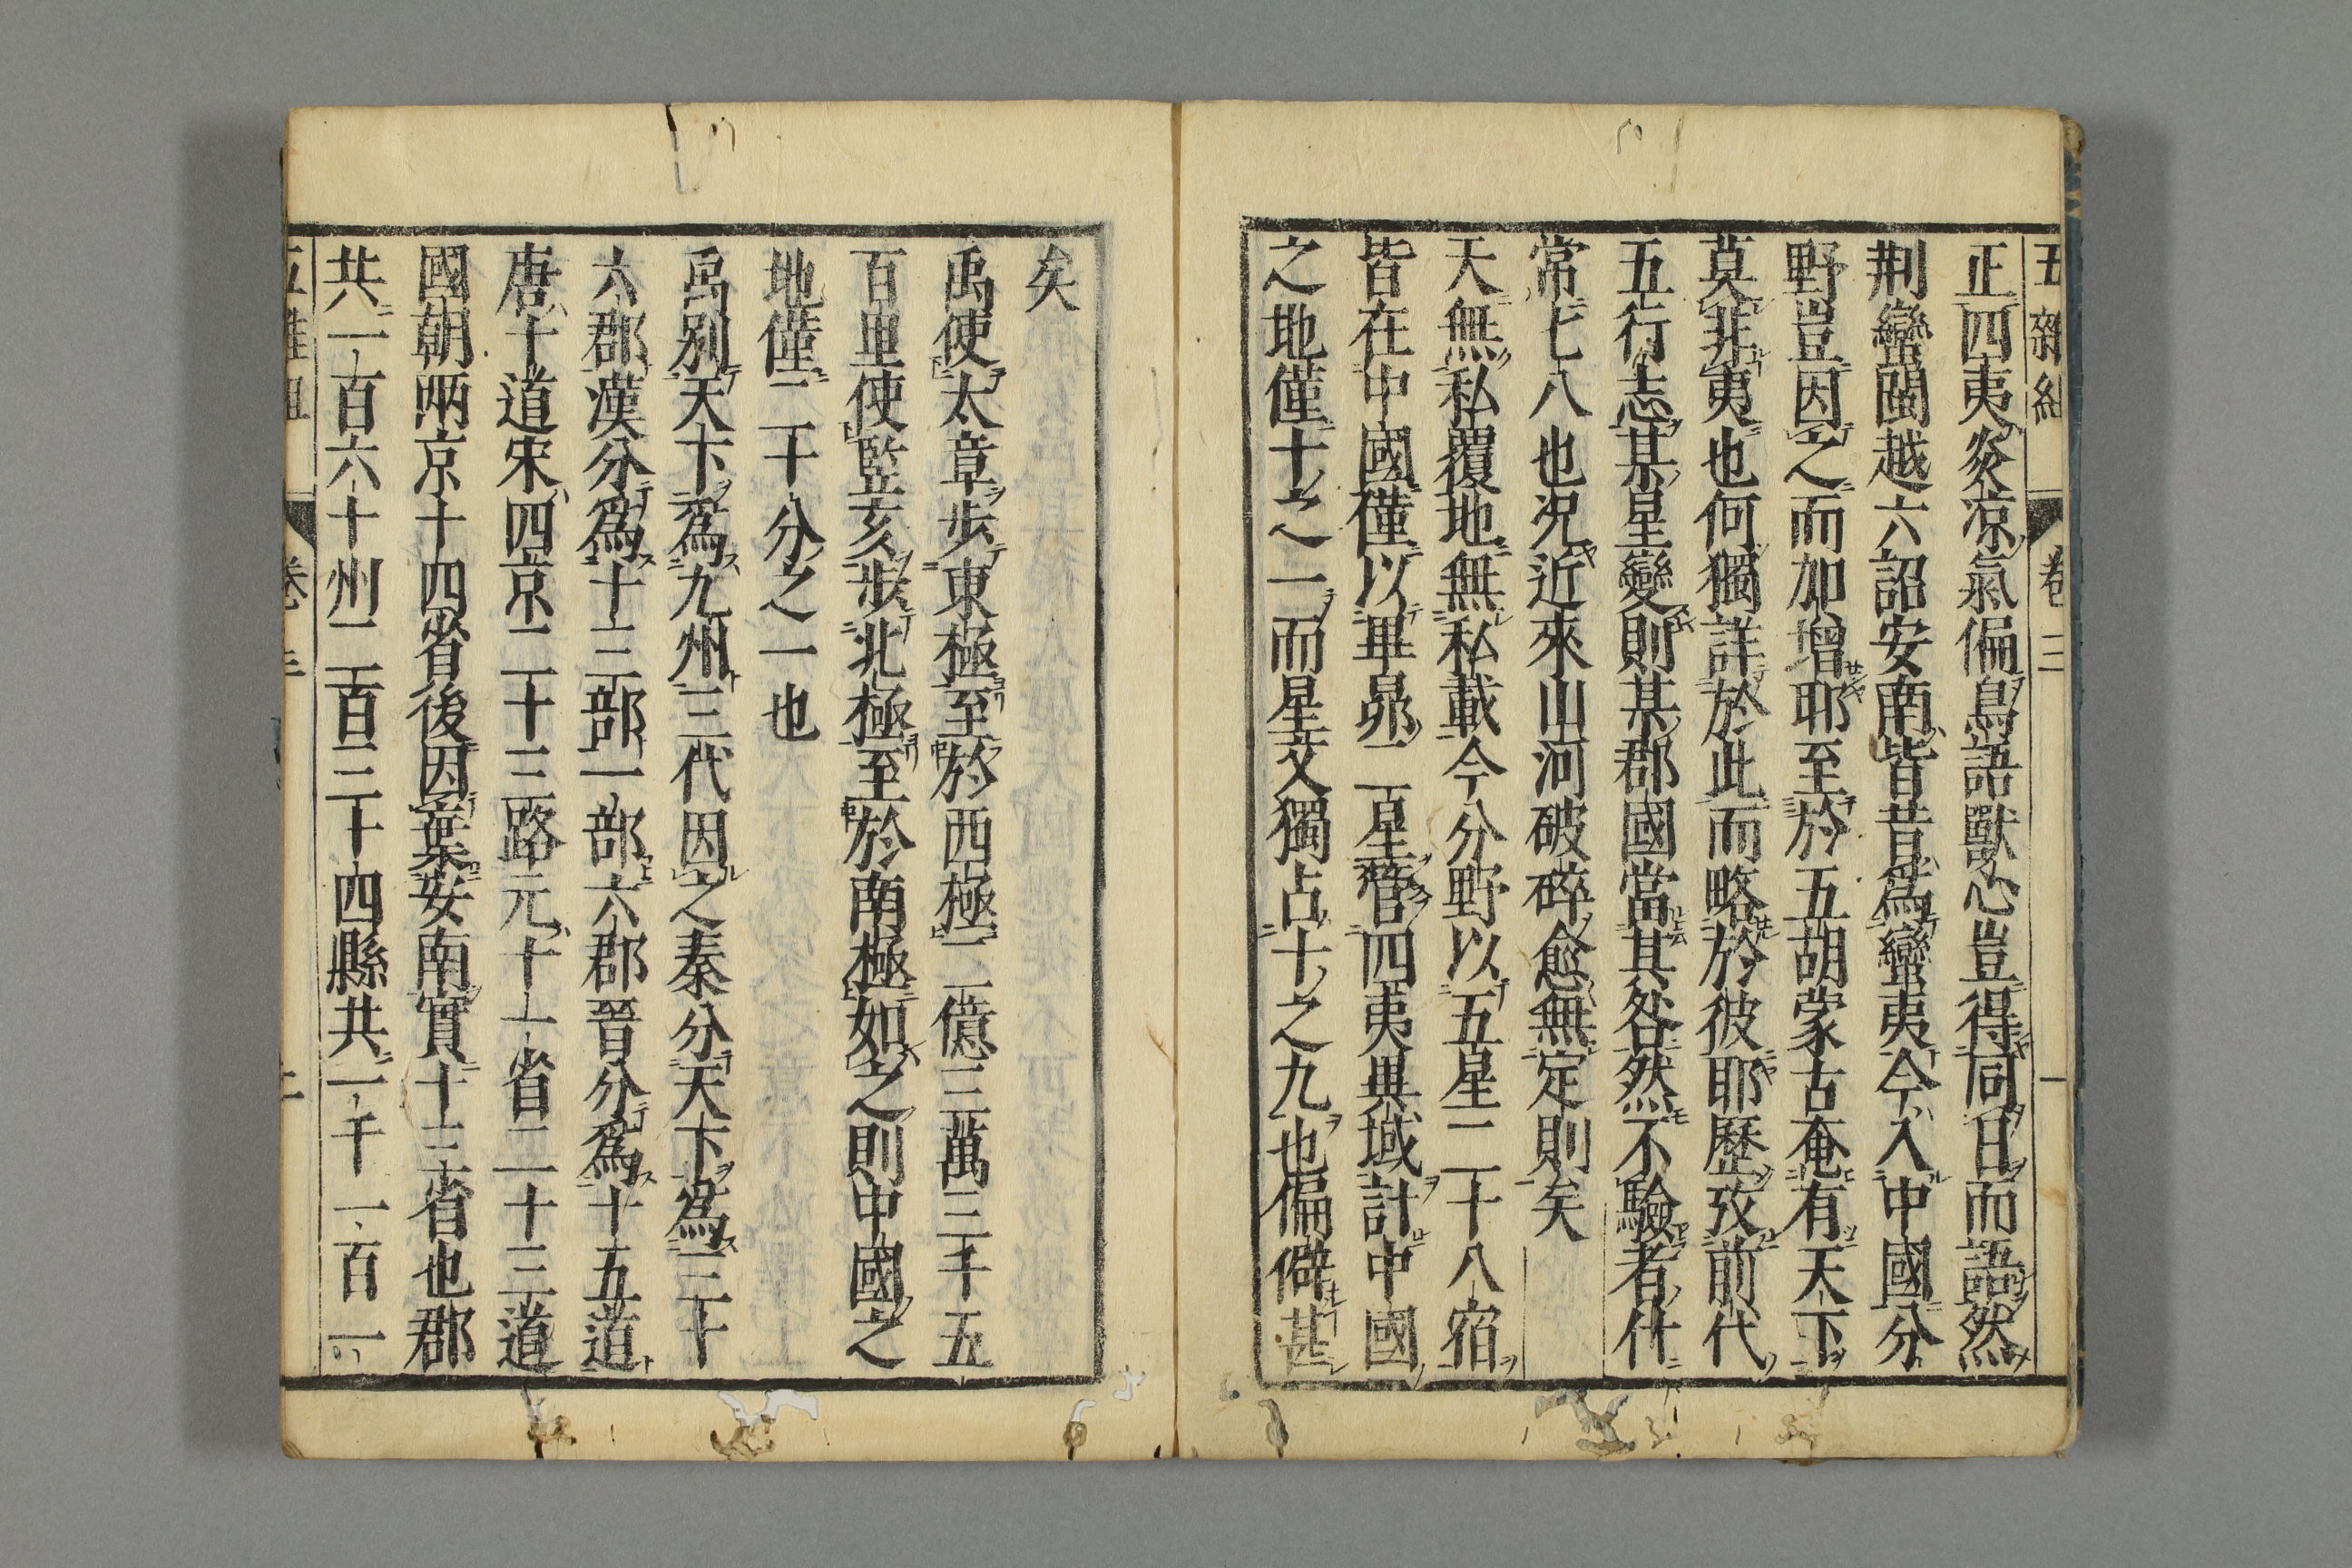 五雜組 卷三 一
正四夷炎凉氣偏鳥語獸心豈得同日而語然
荆蠻閩越六詔安南皆昔爲蠻夷今入中國分
野豈因之而加增耶至於五胡蒙古奄有天下
莫非夷也何獨詳於此而略於彼耶歷攷前代
五行志某星變則某郡國當其咎然不驗者什
常七八也况近來山河破碎愈無定則矣
天無私覆地無私載今分野以五星二十八宿
皆在中國僅以畢昴二星管四夷異域計中國
之地僅十之一而星文獨占十之九也偏僻甚
矣
禹使太章步東極至於西極二億三萬三千五
百里使竪亥步北極至於南極如之則中國之
地僅二千分之一也
禹别天下爲九州三代因之秦分天下爲三十
六郡漢分爲十三部一部六郡晉分爲十五道
唐十道宋四京二十三路元十一省二十三道
國朝兩京十四省後因棄安南實十三省也郡
共一百六十州二百三十四縣共一千一百一
五雜組 卷三 二